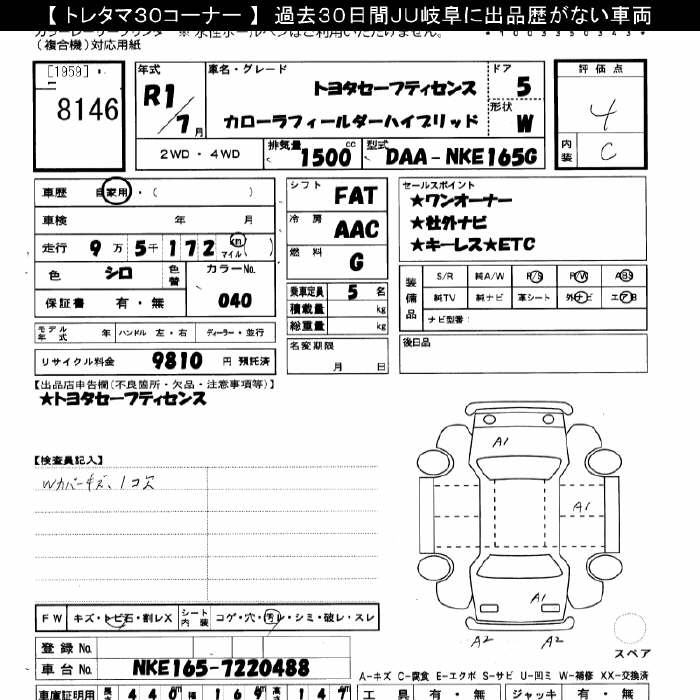 【 トレタマ30コーナー 】 過去30日間JU岐阜に出品歴がない車両
(複合機)対応用紙
[1959]
8146
年式
R1/7月
車名・グレード
トヨタセーフティセンス
カローラフィールダーハイブリッド
ドア 5
形状 W
評価点
4
内装 C
2WD ・ 4WD
排気量 1500 cc
型式 DAA-NKE165G
車歴 自家用・( )
車検 年 月
走行 9万5千172 km マイル( )
色 シロ 色替 カラーNo.
保証書 有・無 040
シフト FAT
冷房 AAC
燃料 G
セールスポイント
★ワンオーナー
★社外ナビ
★キーレス★ETC
乗車定員 5 名
積載量 kg
総重量 kg
装備品
S/R 純A/W P/S P/W ABS
純TV 純ナビ 革シート 外ナビ エアB
ナビ型番:
モデル年式 年 ハンドル 左・右 ディーラー・並行
リサイクル料金 9810 円 預託済
名変期限 月 日
後日品
【出品店申告欄(不良箇所・欠品・注意事項等)】
★トヨタセーフティセンス
【検査員記入】
Wカバーキズ、1コ欠
A1
A1
A1
A2 A2
スペア
FW キズ・トビ石・割レX シート内装 コゲ・穴・汚レ・シミ・破レ・スレ
登録No.
車台No. NKE165-7220488
A-キズ C-腐食 E-エクボ S-サビ U-凹ミ W-補修 XX-交換済
車庫証明用 長さ 440 幅 169 高さ 147
工具 有・無 ジャッキ 有・無